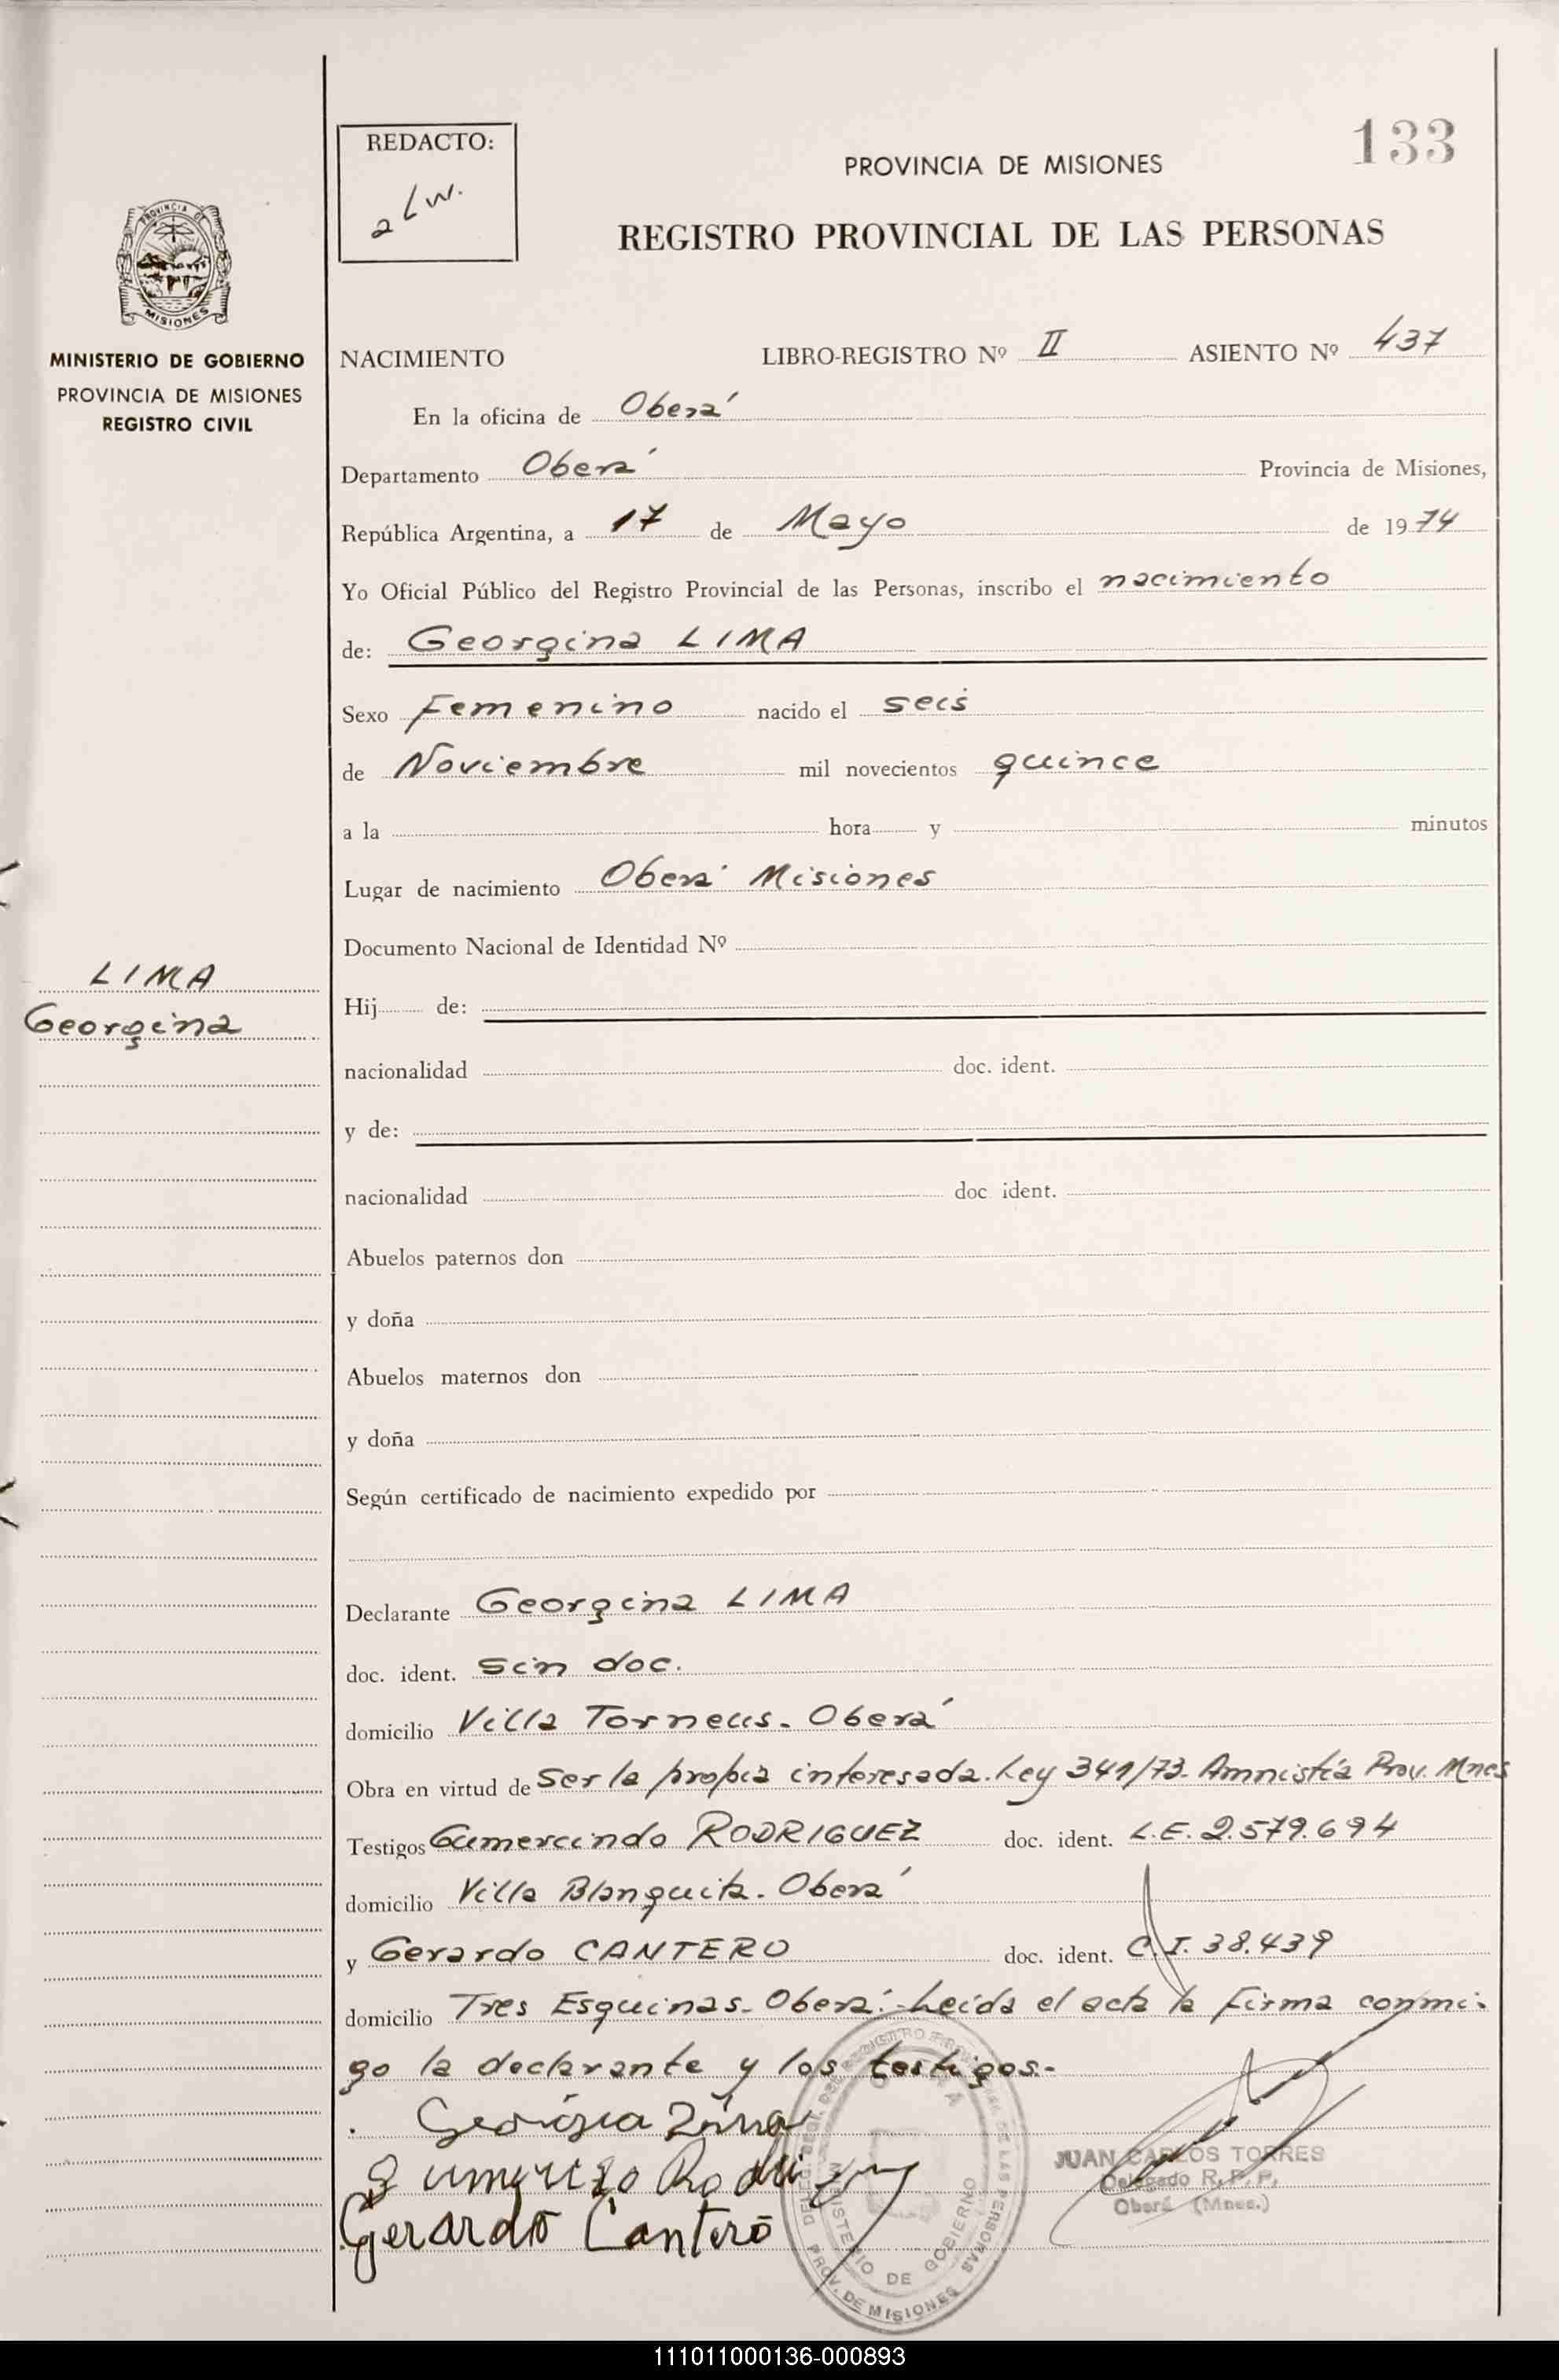 133
REDACTO:
PROVINCIA DE MISIONES
REGISTRO PROVINCIAL DE LAS PERSONAS
PROVINCIA DE
MISIONES
MINISTERIO DE GOBIERNO
PROVINCIA DE MISIONES
REGISTRO CIVIL
NACIMIENTO LIBRO-REGISTRO Nº II ASIENTO Nº 437
En la oficina de Oberá
Departamento Oberá Provincia de Misiones,
República Argentina, a 17 de Mayo de 1974
Yo Oficial Público del Registro Provincial de las Personas, inscribo el nacimiento
de: Georgina LIMA
Sexo Femenino nacido el seis
de Noviembre mil novecientos quince
a la hora y minutos
Lugar de nacimiento Oberá Misiones
Documento Nacional de Identidad Nº
LIMA
Georgina
Hij de:
nacionalidad doc. ident.
y de:
nacionalidad doc ident.
Abuelos paternos don
y doña
Abuelos maternos don
y doña
Según certificado de nacimiento expedido por
Declarante Georgina LIMA
doc. ident. sin doc.
domicilio Villa Torneus. Oberá
Obra en virtud de ser la propia interesada. Ley 341/73. Amnistía Prov. Mnes
Testigos Gumercindo RODRIGUEZ doc. ident. L.E. 2.579.694
domicilio Villa Blanquita. Oberá
y Gerardo CANTERO doc. ident. C.I. 38.439
domicilio Tres Esquinas. Oberá.-Leida el acta la firma conmi-
go la declarante y los testigos.-
Gerardo Cantero
JUAN CARLOS TORRES
Delegado R.P.P.
Oberá (Mnes.)
MINISTERIO DE GOBIERNO
PROV. DE MISIONES
111011000136-000893